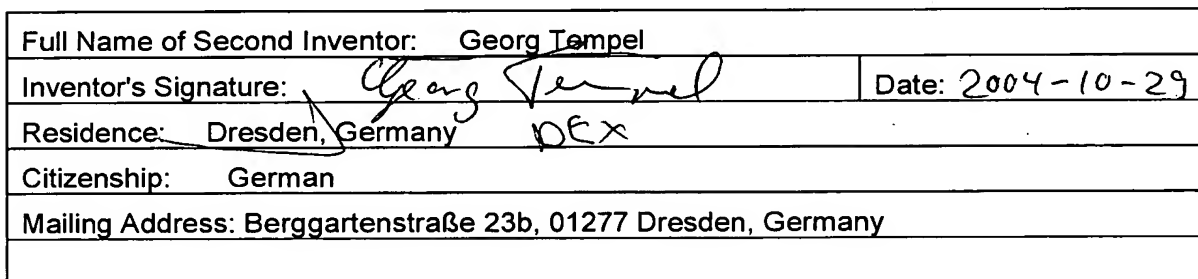 Full Name of Second Inventor: Georg Tempel
Inventor's Signature: Georg Tempel Date: 2004-10-29
Residence: Dresden, Germany DEX
Citizenship: German
Mailing Address: Berggartenstraße 23b, 01277 Dresden, Germany